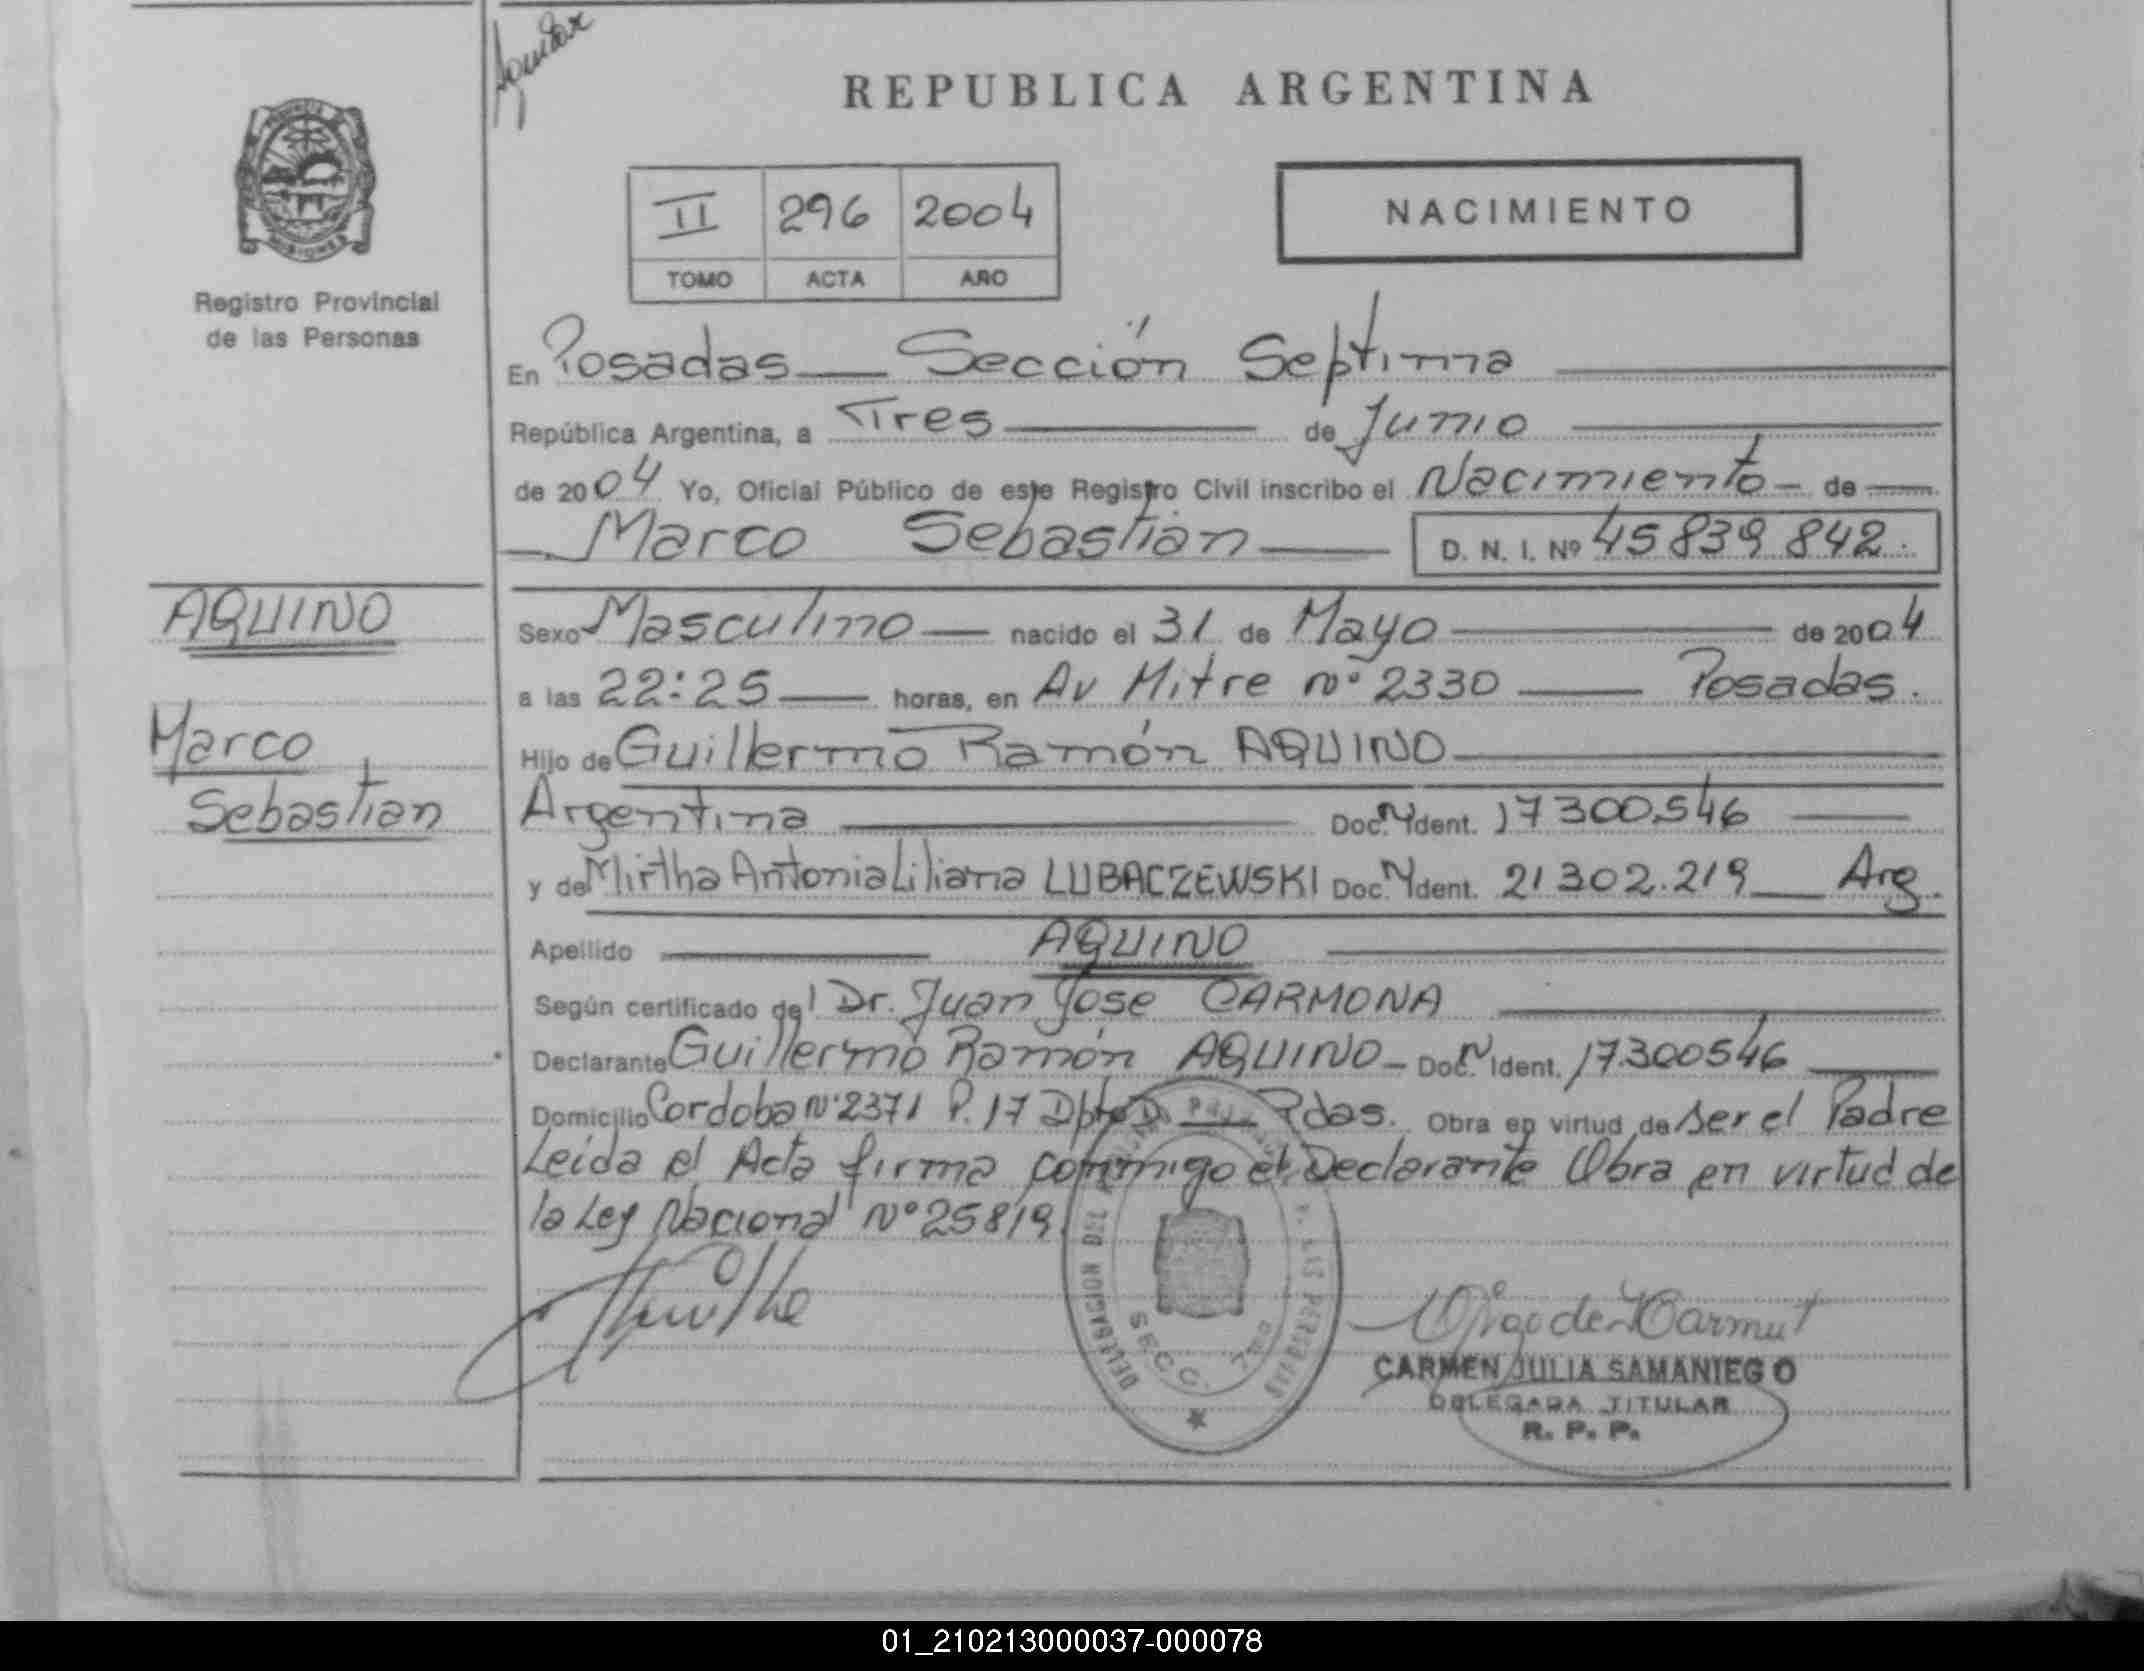 Aquidar
REPUBLICA ARGENTINA
NACIMIENTO
II 296 2004
TOMO ACTA AÑO
MISIONES
Registro Provincial
de las Personas
En Posadas — Sección Septima
República Argentina, a Tres de Junio
de 2004 Yo, Oficial Público de este Registro Civil inscribo el Nacimiento - de
Marco Sebastián D. N. I. Nº 45 839 842.
AQUINO
Marco
Sebastian
Sexo Masculino nacido el 31 de Mayo de 2004
a las 22:25 horas, en Av Mitre nº 2330 — Posadas.
Hijo de Guillermo Ramón AQUINO
Argentina Doc. N Ident. 17300.546
y de Mirtha Antonia Liliana LUBACZEWSKI Doc. N Ident. 21 302.219 Arg.
Apellido AQUINO
Según certificado del Dr. Juan Jose CARMONA
Declarante Guillermo Ramón AQUINO - Doc. N Ident. 17.300546
Domicilio Cordoba Nº 2371 P. 17 Dpto D Pdas. Obra en virtud de ser el Padre
Leida el Acta firma conmigo el Declarante Obra en virtud de
la Ley Nacional Nº 25819
DELEGACION DEL REGISTRO PROVINCIAL DE LAS PERSONAS
SECC. 7ma
CARMEN JULIA SAMANIEGO
DELEGADA TITULAR
R. P. P.
01_210213000037-000078